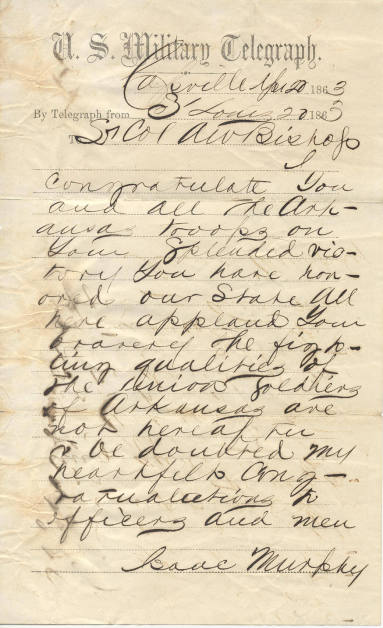 U. S. Military Telegraph.
Casville Apr 20 1863
By Telegraph from St Louis 20 1863
To Lt Col AW Bishop
I
congratulate You
and all the Ark-
ansas troops on
Your Splended vic-
tory You have hon-
ored our State All
here applaud Your
bravery the figh-
ting qualities of
the union Soldiers
of Arkansas are
not hereaf ter
to be doubted my
heartfelt Cong-
ratualations to
officers and men
Isaac Murphy